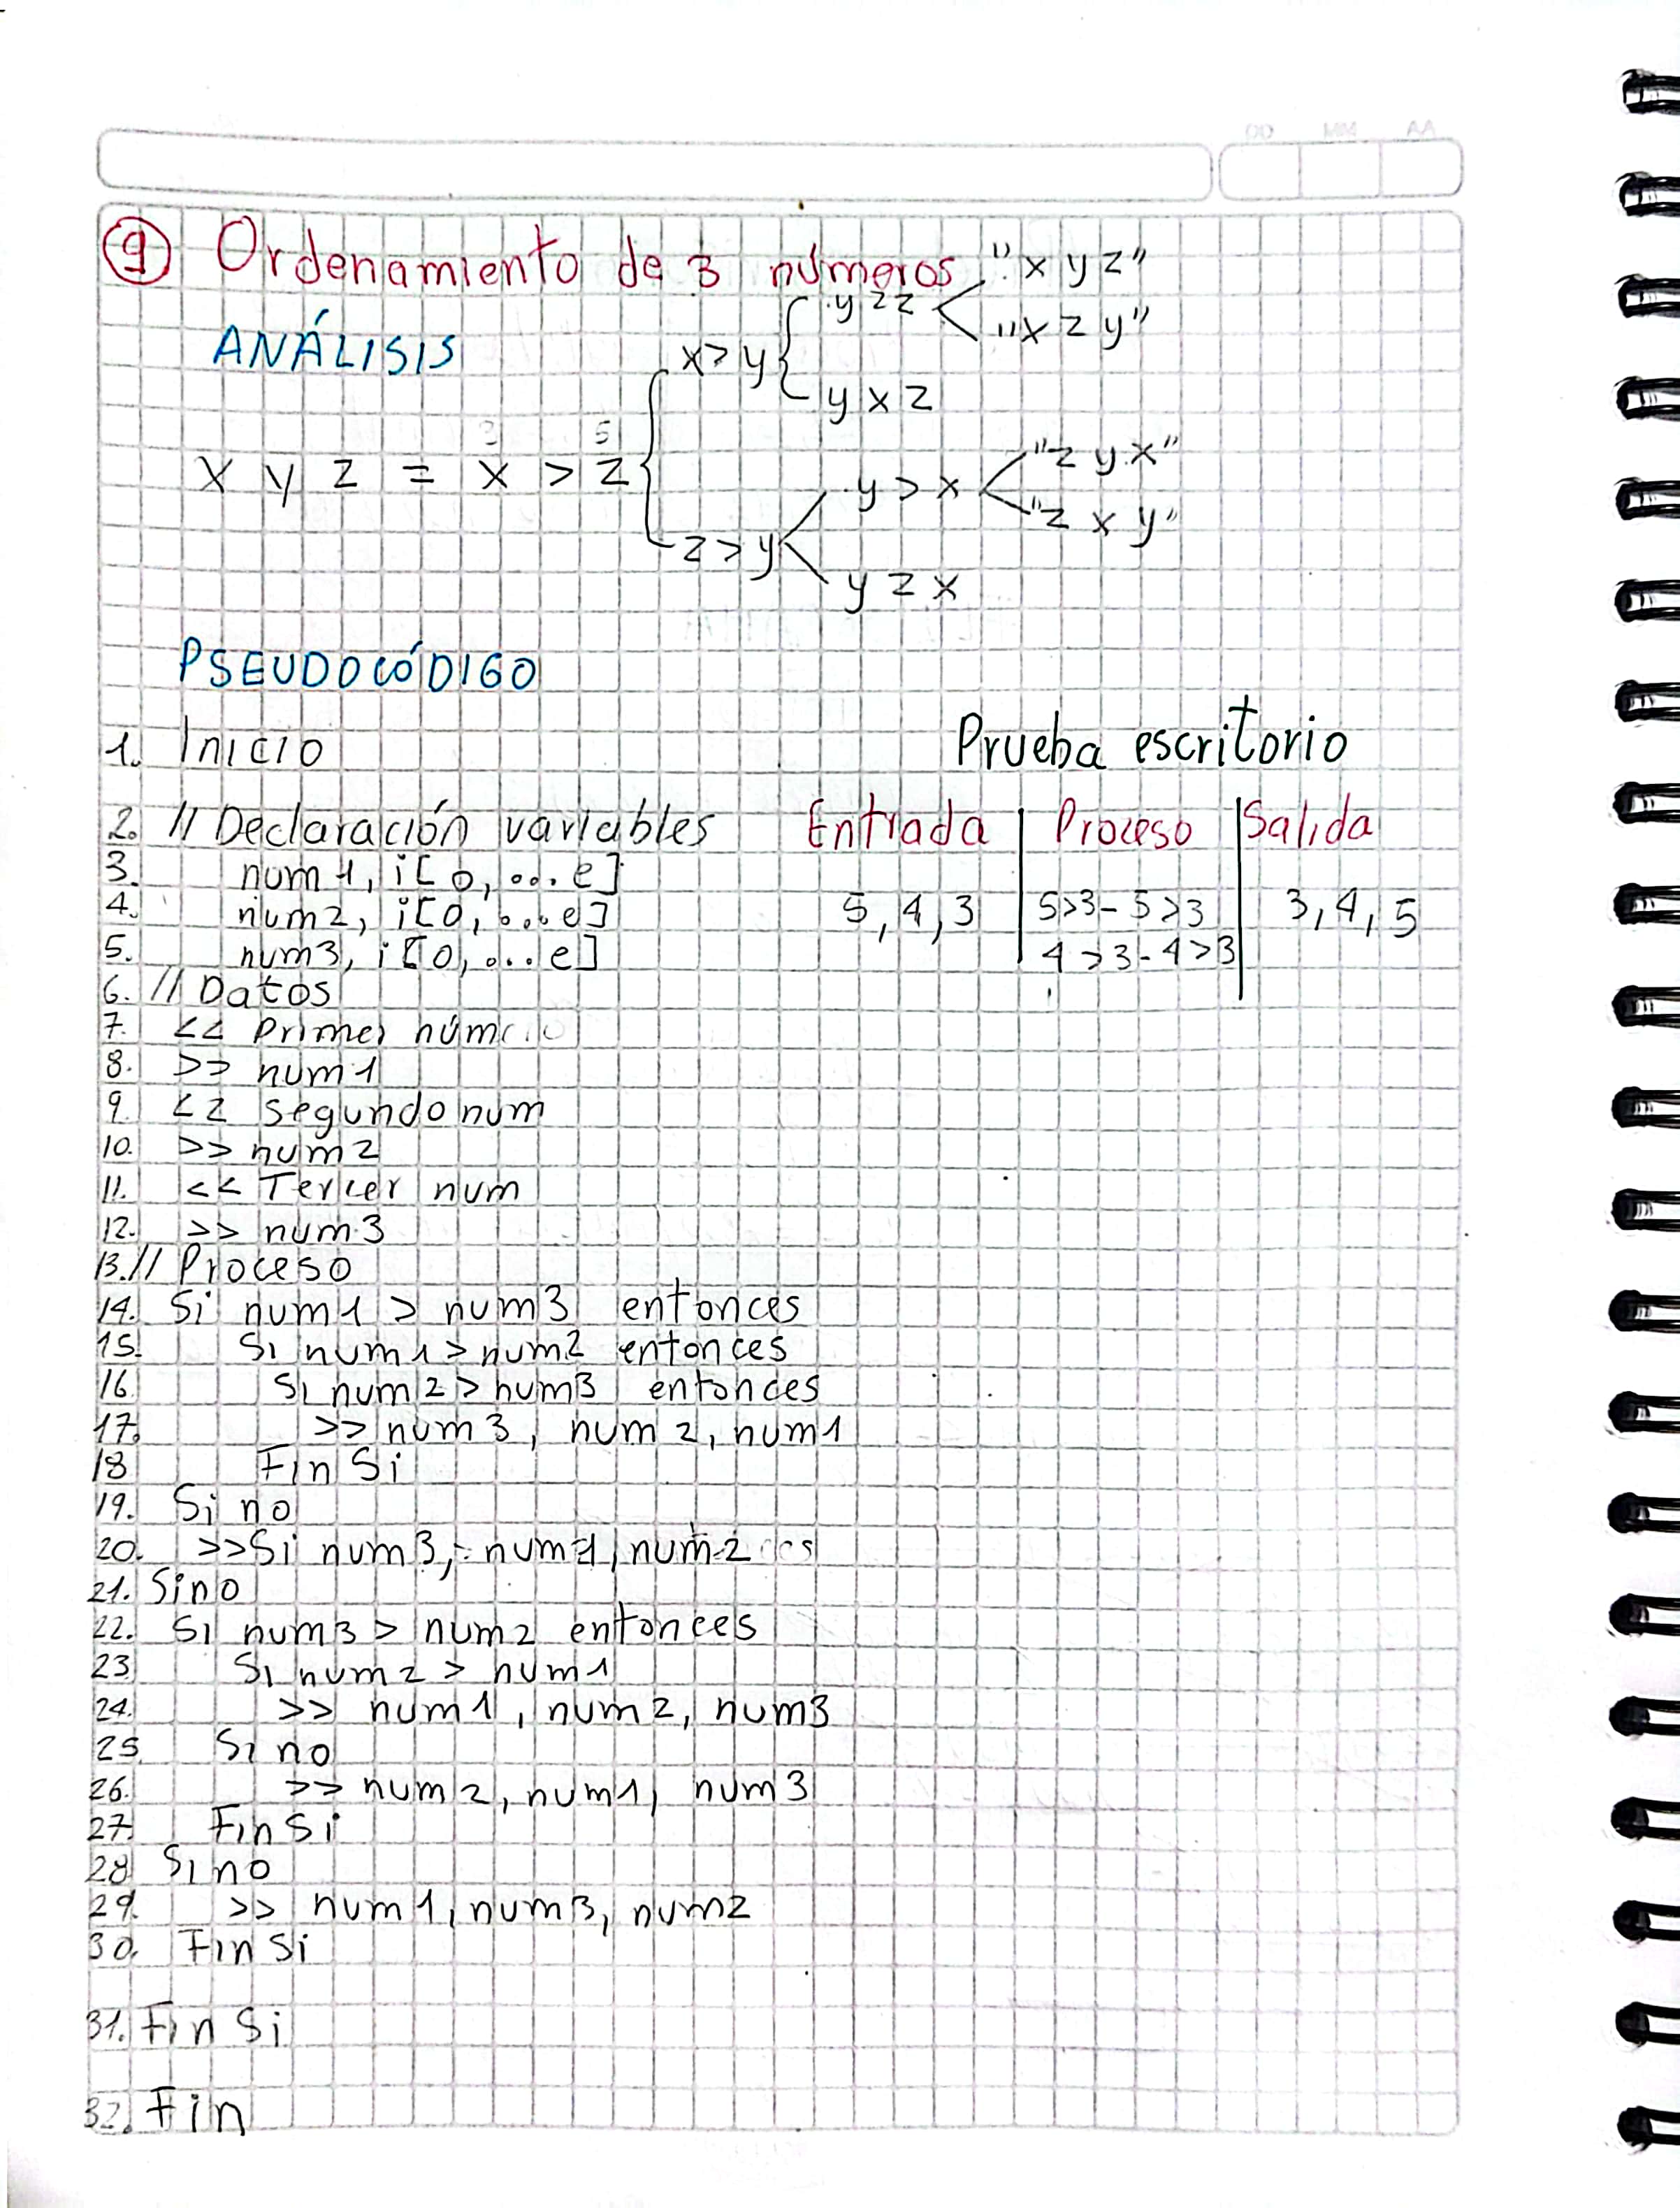 DD MM AA
9 Ordenamiento de 3 números
ANÁLISIS
"x y z"
y > z
"x z y"
x > y
y x z
3 5
x y z = x > z
"z y x"
y > x
"z x y"
z > y
y z x
PSEUDOCÓDIGO
1. Inicio
2. // Declaración variables
3. num1, i[0, ... e]
4. num2, i[0, ... e]
5. num3, i[0, ... e]
6. // Datos
7. << Primer número
8. >> num1
9. << Segundo num
10. >> num2
11. << Tercer num
12. >> num3
13. // Proceso
14. Si num1 > num3 entonces
15. Si num1 > num2 entonces
16. Si num2 > num3 entonces
17. >> num3, num2, num1
18 Fin Si
19. Si no
20. >> Si num3, num1, num2
21. Sino
22. Si num3 > num2 entonces
23 Si num2 > num1
24. >> num1, num2, num3
25. Si no
26. >> num2, num1, num3
27. Fin Si
28 Sino
29. >> num1, num3, num2
30. Fin Si
31. Fin Si
32. Fin
Prueba escritorio
Entrada | Proceso | Salida
5, 4, 3 | 5>3 - 5>3 | 3, 4, 5
4>3 - 4>3